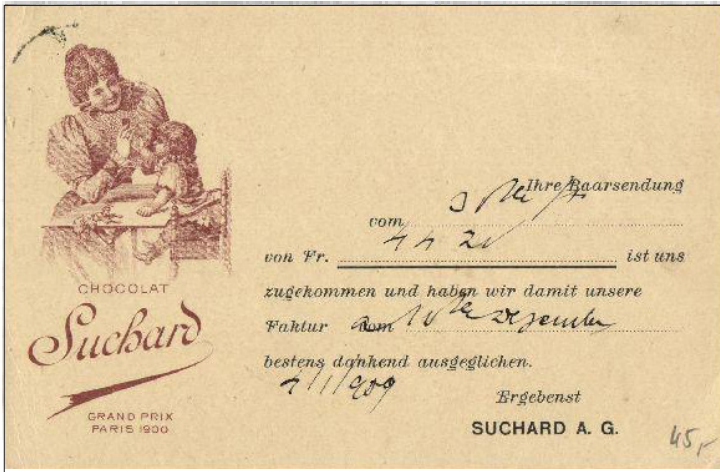 CHOCOLAT
Suchard
GRAND PRIX
PARIS 1900
Ihre Baarsendung
vom
von Fr. 44 20 ist uns
zugekommen und haben wir damit unsere
Faktur vom 10 Dezember
bestens dankend ausgeglichen.
4/1/909
Ergebenst
SUCHARD A. G.
45,-